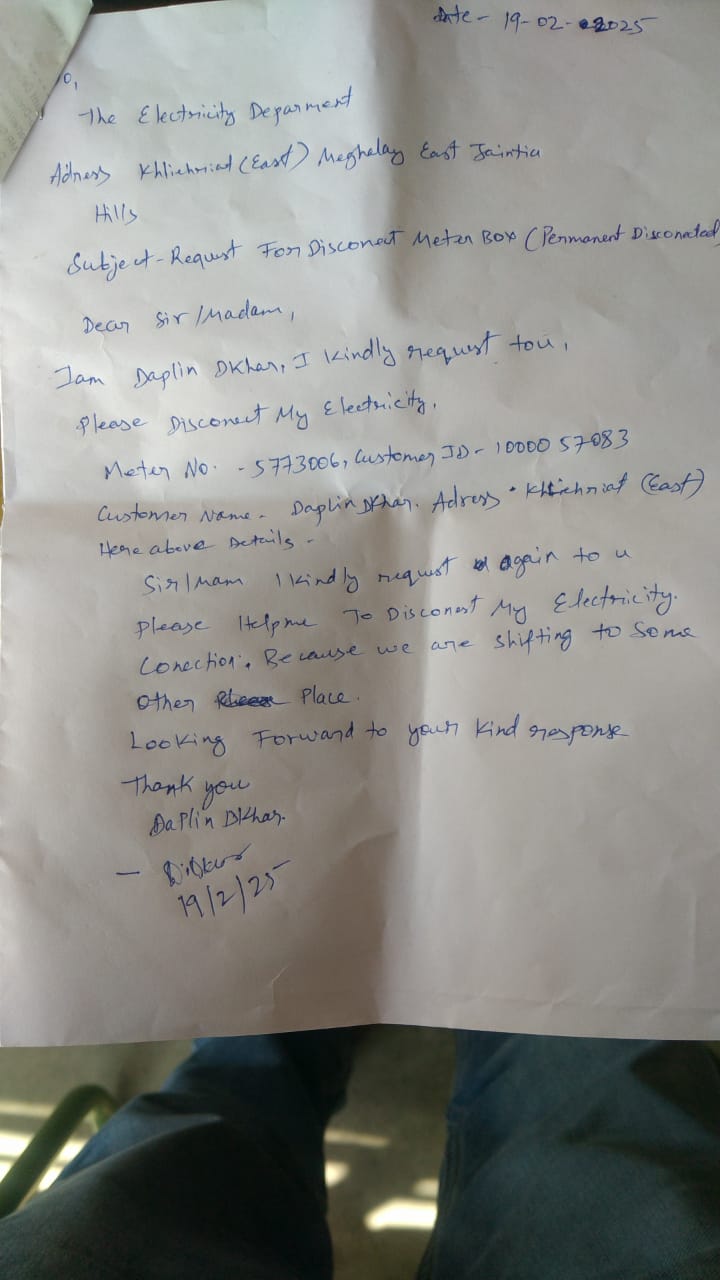 Date - 19-02-2025
To,
The Electricity Deparment
Adress Khliehriat (East) Meghalay East Jaintia
Hills
Subject - Requst For Disconect Meter Box (Permanent Disconated
Dear Sir/Madam,
Iam Daplin DKhar, I Kindly request tou,
Please Disconect My Electricity.
Meter No. - 5773006, Customer ID - 1000057083
Customer Name - Daplin DKhar. Adress • Khliehriat (East)
Here above Details -
Sir/Mam I kindly requst again to u
please Helpme To Disconest My Electricity.
Conection. Because we are shifting to Some
other Place.
Looking Forward to your Kind response
Thank you
DaPlin DKhar.
19/2/25